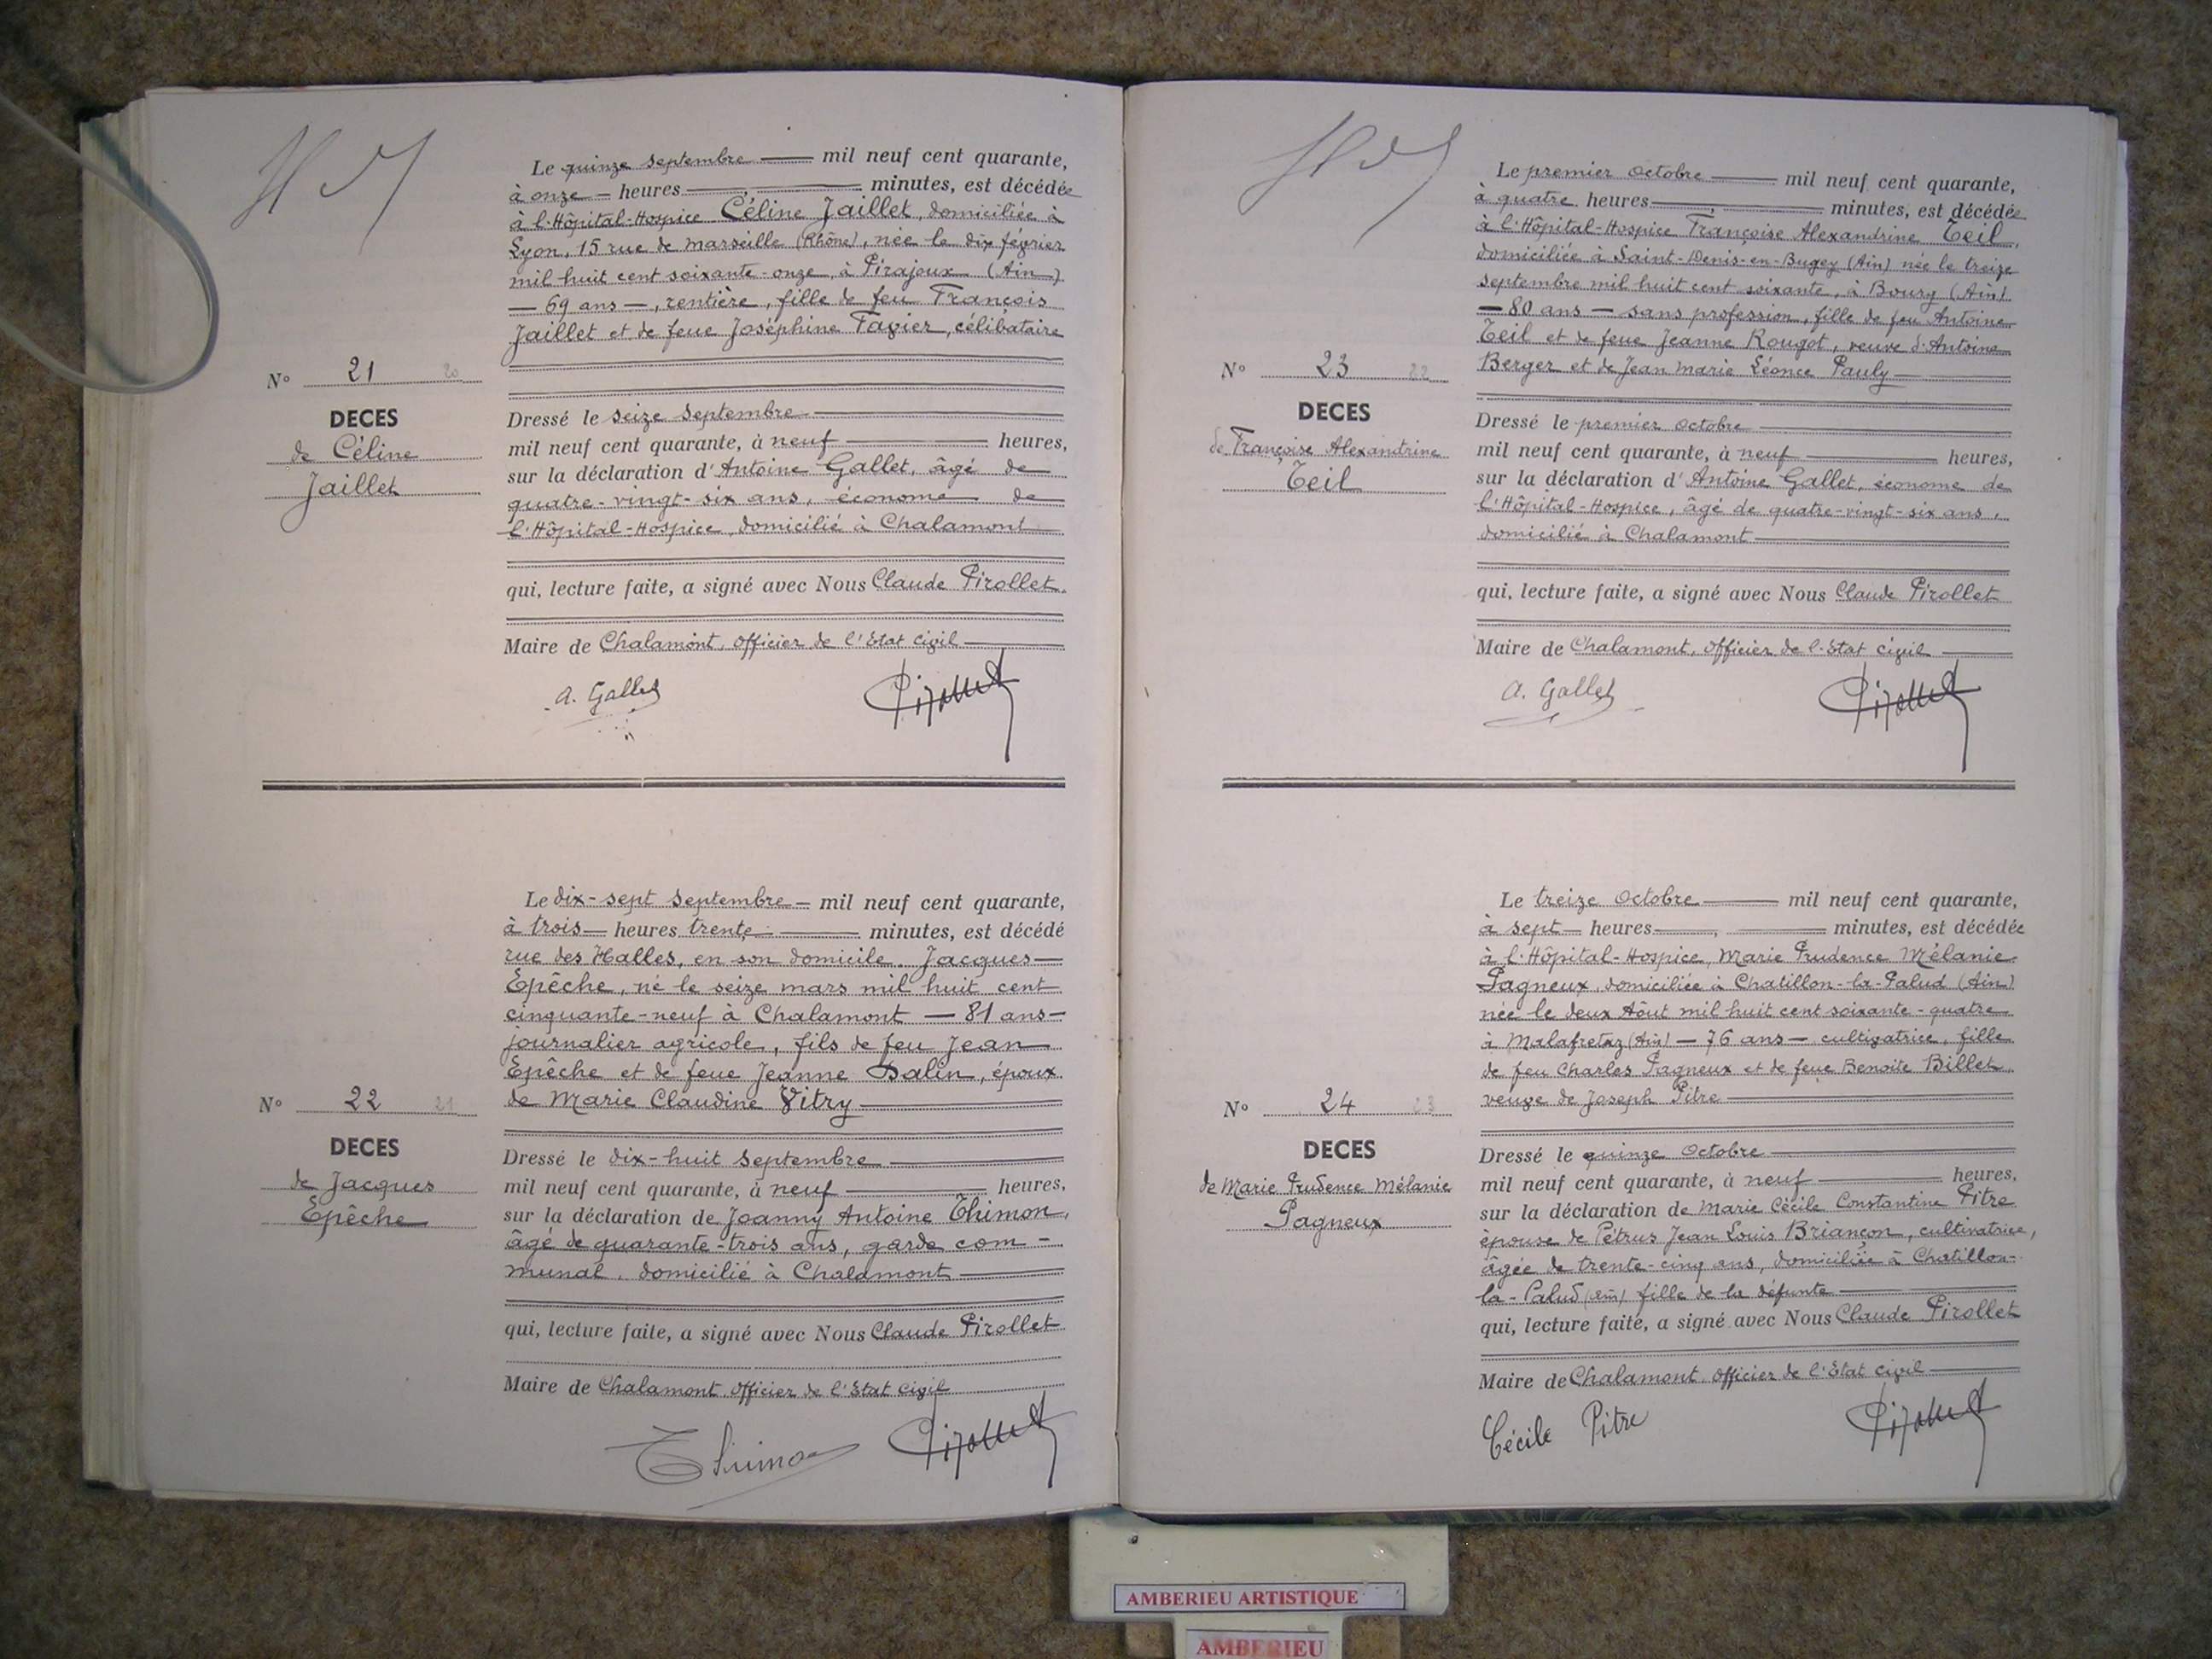 HdJ
Le quinze septembre mil neuf cent quarante,
à onze heures minutes, est décédée
à l'Hôpital-Hospice Céline Jaillet, domiciliée à
Lyon, 15 rue de Marseille (Rhône), née le dix février
mil huit cent soixante-onze, à Pirajoux (Ain)
— 69 ans —, rentière, fille de feu François
Jaillet et de feue Joséphine Favier, célibataire
N° 21 20
DECES
de Céline
Jaillet
Dressé le seize septembre
mil neuf cent quarante, à neuf heures,
sur la déclaration d'Antoine Gallet, âgé de
quatre-vingt-six ans, économe de
l'Hôpital-Hospice, domicilié à Chalamont
qui, lecture faite, a signé avec Nous Claude Pirollet.
Maire de Chalamont, officier de l'Etat civil
A. Gallet Pirollet
Le dix-sept septembre — mil neuf cent quarante,
à trois — heures trente minutes, est décédé
rue des Halles, en son domicile, Jacques
Epêche, né le seize mars mil huit cent
cinquante-neuf à Chalamont — 81 ans —
journalier agricole, fils de feu Jean
Epêche et de feue Jeanne Dalin, époux
de Marie Claudine Vitry
N° 22 21
DECES
de Jacques
Epêche
Dressé le dix-huit septembre
mil neuf cent quarante, à neuf heures,
sur la déclaration de Joanny Antoine Thimon,
âgé de quarante-trois ans, garde com-
munal, domicilié à Chalamont
qui, lecture faite, a signé avec Nous Claude Pirollet
Maire de Chalamont, officier de l'Etat civil
Thimon Pirollet
HdJ
Le premier octobre mil neuf cent quarante,
à quatre heures minutes, est décédée
à l'Hôpital-Hospice Françoise Alexandrine Teil,
domiciliée à Saint-Denis-en-Bugey (Ain) née le treize
septembre mil huit cent soixante, à Bourg (Ain)
— 80 ans — sans profession, fille de feu Antoine
Teil et de feue Jeanne Rougot, veuve d'Antoine
Berger et de Jean Marie Léonce Pauly
N° 23 22
DECES
de Françoise Alexandrine
Teil
Dressé le premier octobre
mil neuf cent quarante, à neuf heures,
sur la déclaration d'Antoine Gallet, économe de
l'Hôpital-Hospice, âgé de quatre-vingt-six ans,
domicilié à Chalamont
qui, lecture faite, a signé avec Nous Claude Pirollet
Maire de Chalamont, officier de l'Etat civil
A. Gallet Pirollet
Le treize octobre mil neuf cent quarante,
à sept heures minutes, est décédée
à l'Hôpital-Hospice, Marie Prudence Mélanie
Pagneux, domiciliée à Chatillon-la-Palud (Ain)
née le deux Août mil huit cent soixante-quatre
à Malafretaz (Ain) — 76 ans — cultivatrice, fille
de feu Charles Pagneux et de feue Benoite Billet,
veuve de Joseph Pitre
N° 24 23
DECES
de Marie Prudence Mélanie
Pagneux
Dressé le quinze octobre
mil neuf cent quarante, à neuf heures,
sur la déclaration de Marie Cécile Constantine Pitre
épouse de Pétrus Jean Louis Briançon, cultivatrice,
âgée de trente-cinq ans, domiciliée à Chatillon-
la-Palud (Ain) fille de la défunte
qui, lecture faite, a signé avec Nous Claude Pirollet
Maire de Chalamont, officier de l'Etat civil
Cécile Pitre Pirollet
AMBERIEU ARTISTIQUE
AMBERIEU